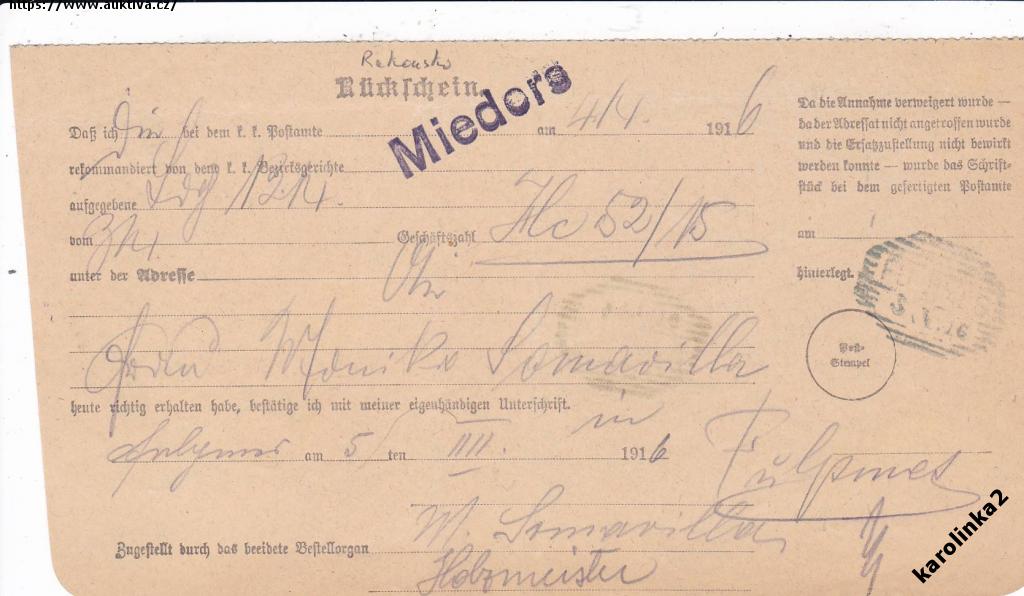 https://www.auktiva.cz/
Rakousko
Rückschein.
Miedors
Daß ich bei dem k. k. Postamte am 4/4. 1916
rekommandiert von dem k. k. Bezirksgerichte
aufgegebene 1214.
vom 3/4. Geschäftszahl Hc 52/15
unter der Adresse
Frau Monika Somavilla
heute richtig erhalten habe, bestätige ich mit meiner eigenhändigen Unterschrift.
in
Fulpmes am 5 ten IIII. 1916
Fulpmes
M. Somavilla
Zugestellt durch das beeidete Bestellorgan
Holzmeister
Da die Annahme verweigert wurde —
da der Adressat nicht angetroffen wurde
und die Ersatzzustellung nicht bewirkt
werden konnte — wurde das Schrift-
stück bei dem gefertigten Postamte
am
hinterlegt.
Post-
Stempel
karolinka2